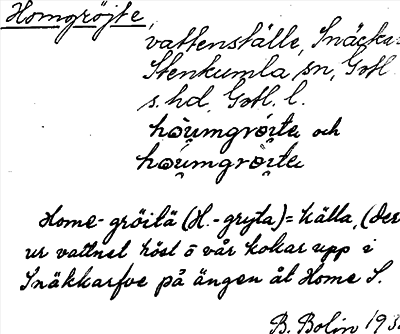 Homgröjte,
vattenställe, Snäcka
Stenkumla sn, Gotl.
s. hd, Gotl. l.
hòu̯mgrói̯te och
hòu̯mgröi̯te
Home-gröitä (H.-gryta) = källa, (der
ur vattnet höst ō vår kokar upp i
Snäkkarfve på ängen åt Home S.
B. Bolin 193